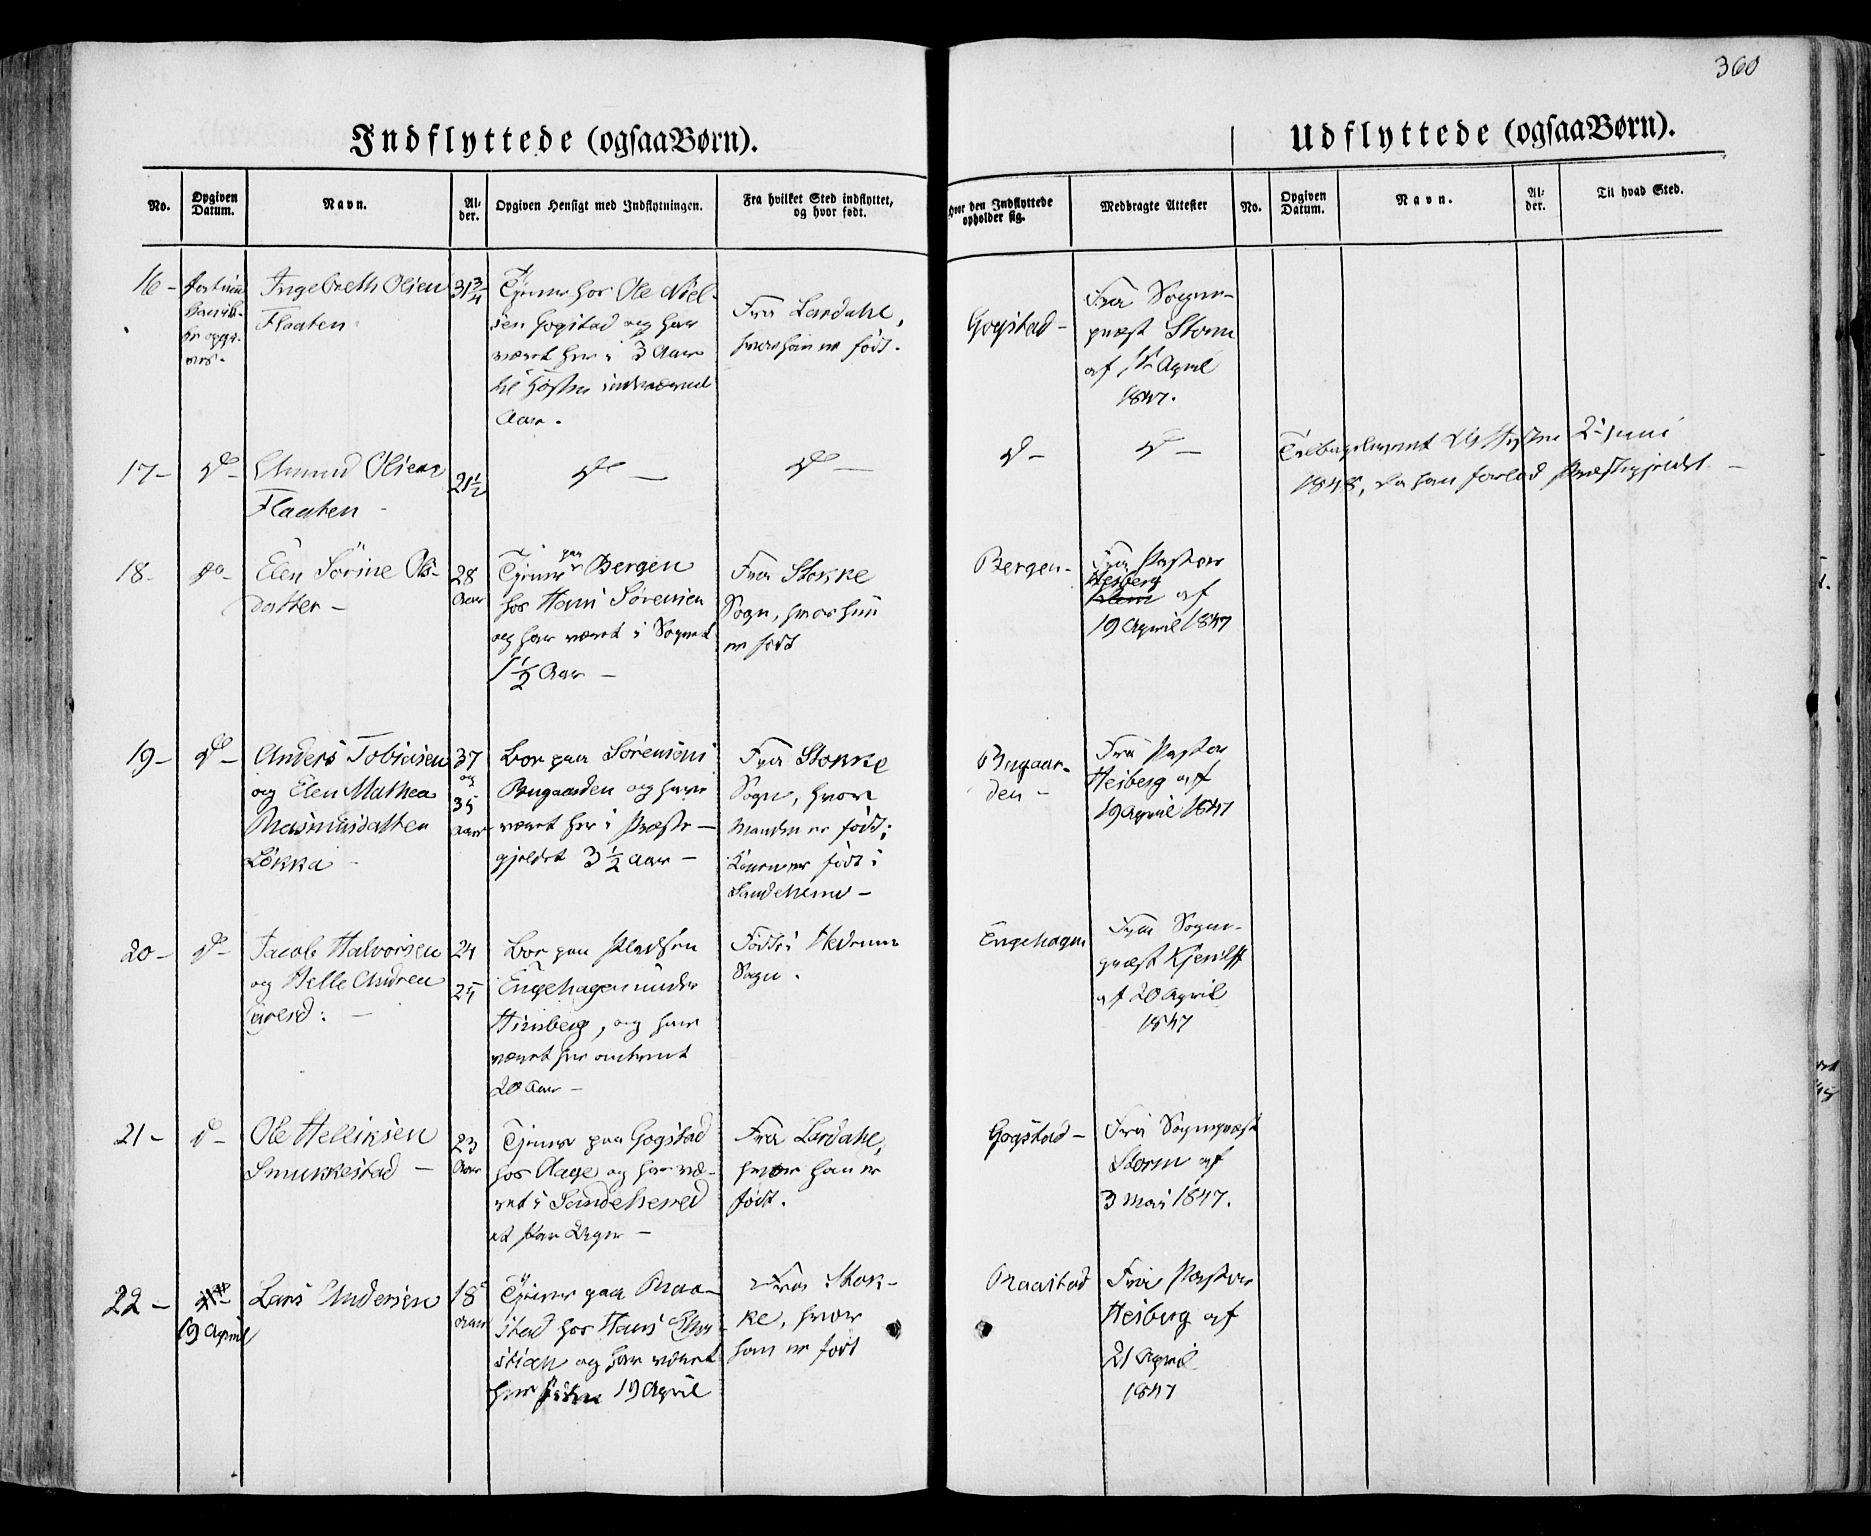 360
Indflyttede (ogsaa Børn).
Udflyttede (ogsaa Børn).
No.
Opgiven Datum.
Navn.
Al-
der.
Opgiven Hensigt med Indflytningen.
Fra hvilket Sted indflyttet,
og hvor født.
Hvor den Indflyttede
opholder sig.
Medbragte Attester
No.
Opgiven
Datum.
Navn.
Al-
der.
Til hvad Sted.
16 -
Ingebreth Olsen
Flaaten
31 3/4
Tjener hos Ole Niel-
sen Gogstad og har
været her i 3 Aar
til Høsten indeværende
Aar.
Fra Lardahl,
hvor han er født.
Gogstad -
Fra Sogne-
præst Storm
af 1ste April
1847.
17 -
do -
Amund Olsen
Flaaten -
21 1/2
do -
do -
do -
do -
2 Juni
1848, da han forlod Præstegjeldet -
18 -
do -
Elen Sörine Ols-
datter -
28
Aar
Tjener paa Bergen
hos Hans Sörensen
og har været i Sognet
1 1/2 Aar -
Fra Stokke
Sogn, hvor hun
er født
Bergen -
Fra Pastor
Heiberg
af
19 April 1847
19 -
do -
Anders Tobiasen
og Elen Mathea
Rasmusdatter
Løkka -
37
og
35
Aar
Bor paa Sörensens
Bugaarden og have
været her i Præste-
gjeldet 3 1/2 Aar -
Fra Stokke
Sogn, hvor
Manden er født;
Konen er født i
Sandeherred -
Bugaar-
den -
Fra Pastor
Heiberg af
19 April 1847
20 -
do -
Jacob Halvorsen
og Helle Andrea
Larsd: -
24
25
Bor paa Pladsen
Engehagen under
Himberg, og har
været her omtrent
20 Aar -
Født i Hedrum
Sogn.
Engehagen
Fra Sogne-
præst Kjerulff
af 20 April
1847
21 -
do -
Ole Helliksen
Smukkestad -
23
Aar
Tjener paa Gogstad
hos Aage og har væ-
ret i Sandeherred
et Par Uger -
Fra Lardahl,
hvor han er
født.
Gogstad -
Fra Sognepræst
Storm af
3 Mai 1847.
22 -
19 April
Lars Andersen
18
Aar
Tjener paa Raa-
stad hos Hans Chri-
stian og har været
her siden 19 April
Fra Stok-
ke, hvor
han er født
Raastad
Fra Pastor
Heiberg af
21 April
1847